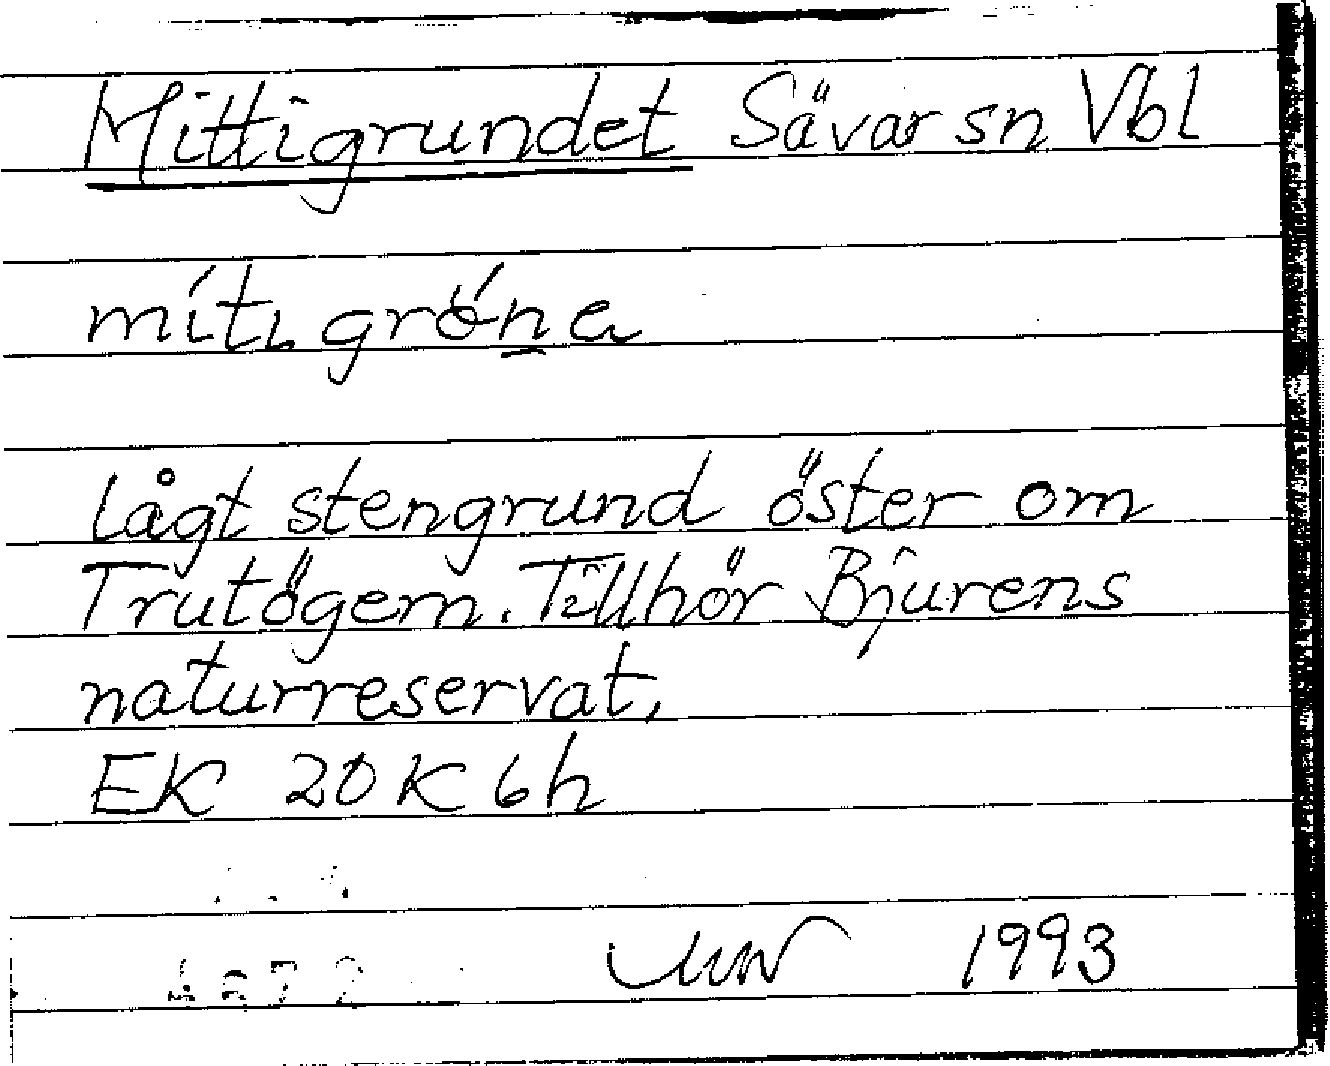 Mittigrundet Sävar sn Vbl
mítɩgrö́na
lågt stengrund öster om
Trutögern. Tillhör Bjurens
naturreservat.
EK 20K 6h
1993